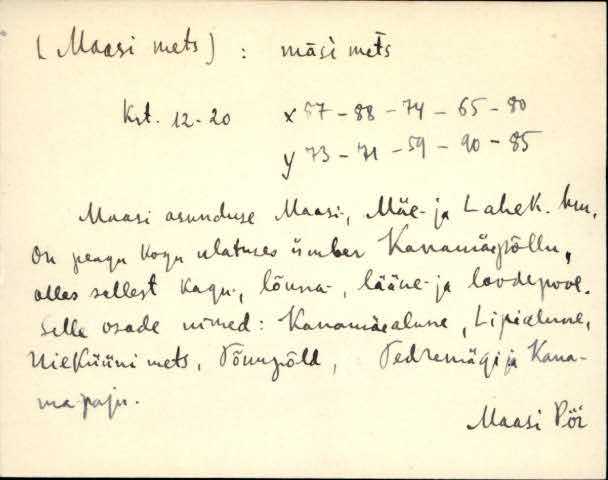 (Maasi mets) : māsi mets
Krt. 12-20 x 57 - 88 - 74 - 65 - 80
y 73 - 71 - 59 - 90 - 85
Maasi asunduse Maasi-, Mäe- ja Lahek. hm.
On peagu kogu ulatuses ümber Kanamäepõllu,
olles sellest kagu-, lõuna-, lääne- ja loodepool.
Selle osade nimed: Kanamäealune, Lipialune,
Uieküüni mets, Tõnupõld, Tedremägi ja Kana-
mapaju.
Maasi Pöi